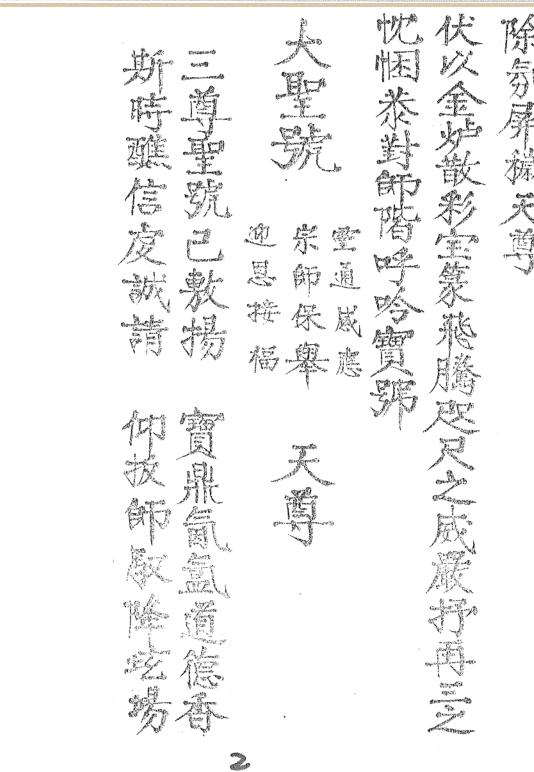 除氛屏穢天尊
伏以金炉散彩宝篆飛騰咫尺之威嚴抒再三之
忱悃恭對師階呼吟寶號
大聖號
靈通感應
宗師保舉
迎恩接福
天尊
三尊聖號已敷揚 寶鼎氤氳道德香
斯時醮信虔誠請 仰扳師馭降壇場
2